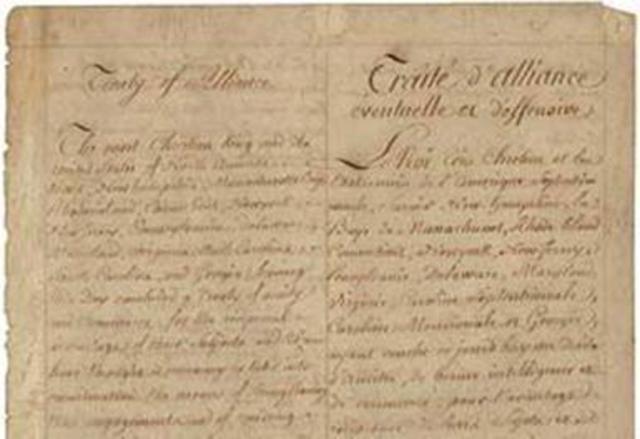 Treaty of Alliance
The most Christian King and the
United States of North America
New Hampshire, Massachusetts Bay
Rhodeisland, Connecticut, Newyork
New Jersey, Pennsylvania, Delaware
Maryland, Virginia, North Carolina
South Carolina, and Georgia having
this Day concluded a Treaty of amity
and Commerce, for the reciprocal
advantage of their Subjects and
have thought it necessary to take into
consideration the means of strengthening
those engagements and of
Traité d'alliance
eventuelle et deffensive
Le Roi très Chretien et les
Etats unis de l'Amerique Septentrio
nale, New Hampshire, la
Baye de Massachuset, Rhode island
Connecticut, Newyork, New Jersey,
Pensylvanie, Delaware, Maryland,
Virginie Caroline Septentrionale,
Caroline Meridionale et Georgie,
ayant conclu ce jourd'huy un traité
d'amitié, de bonne intelligence et
de commerce, pour l'avantage
de leurs Sujets,